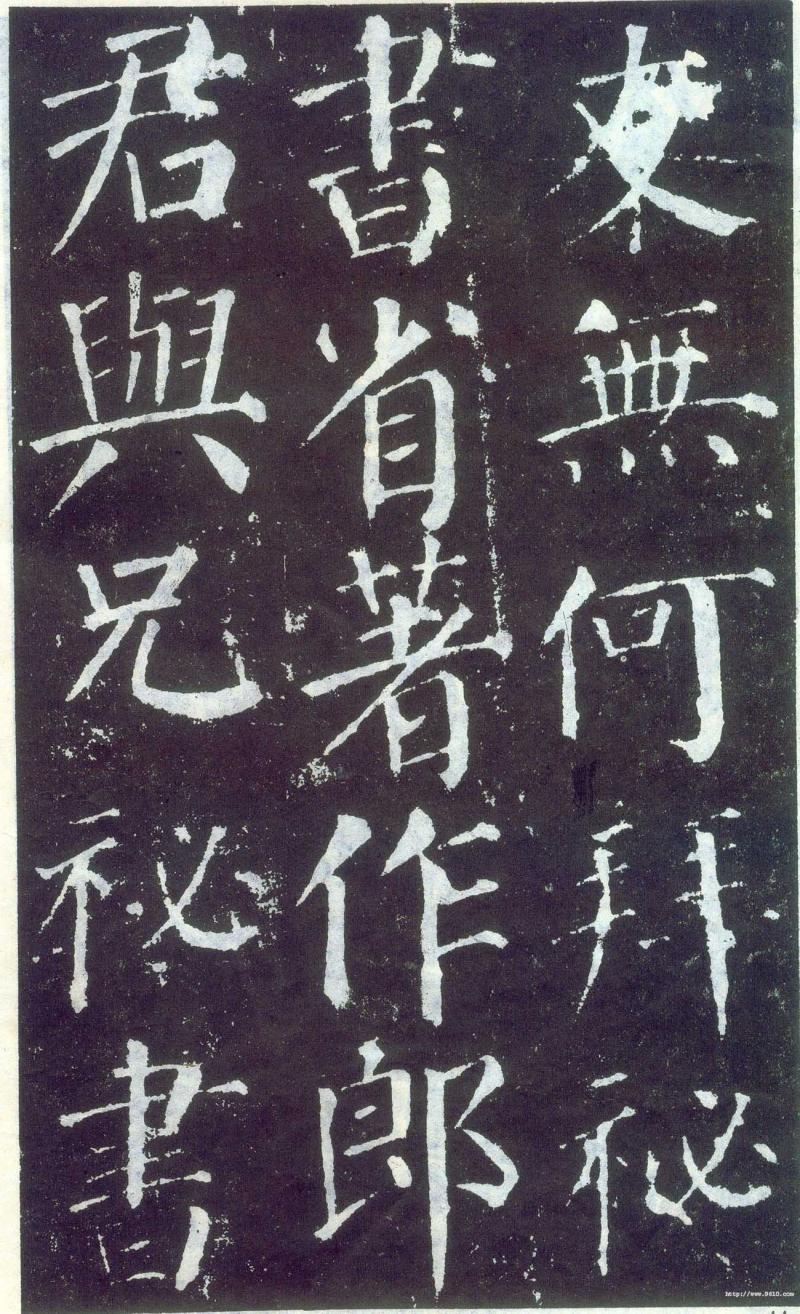 無何拜祕
書省著作郎
君與兄祕書
http://www.9610.com